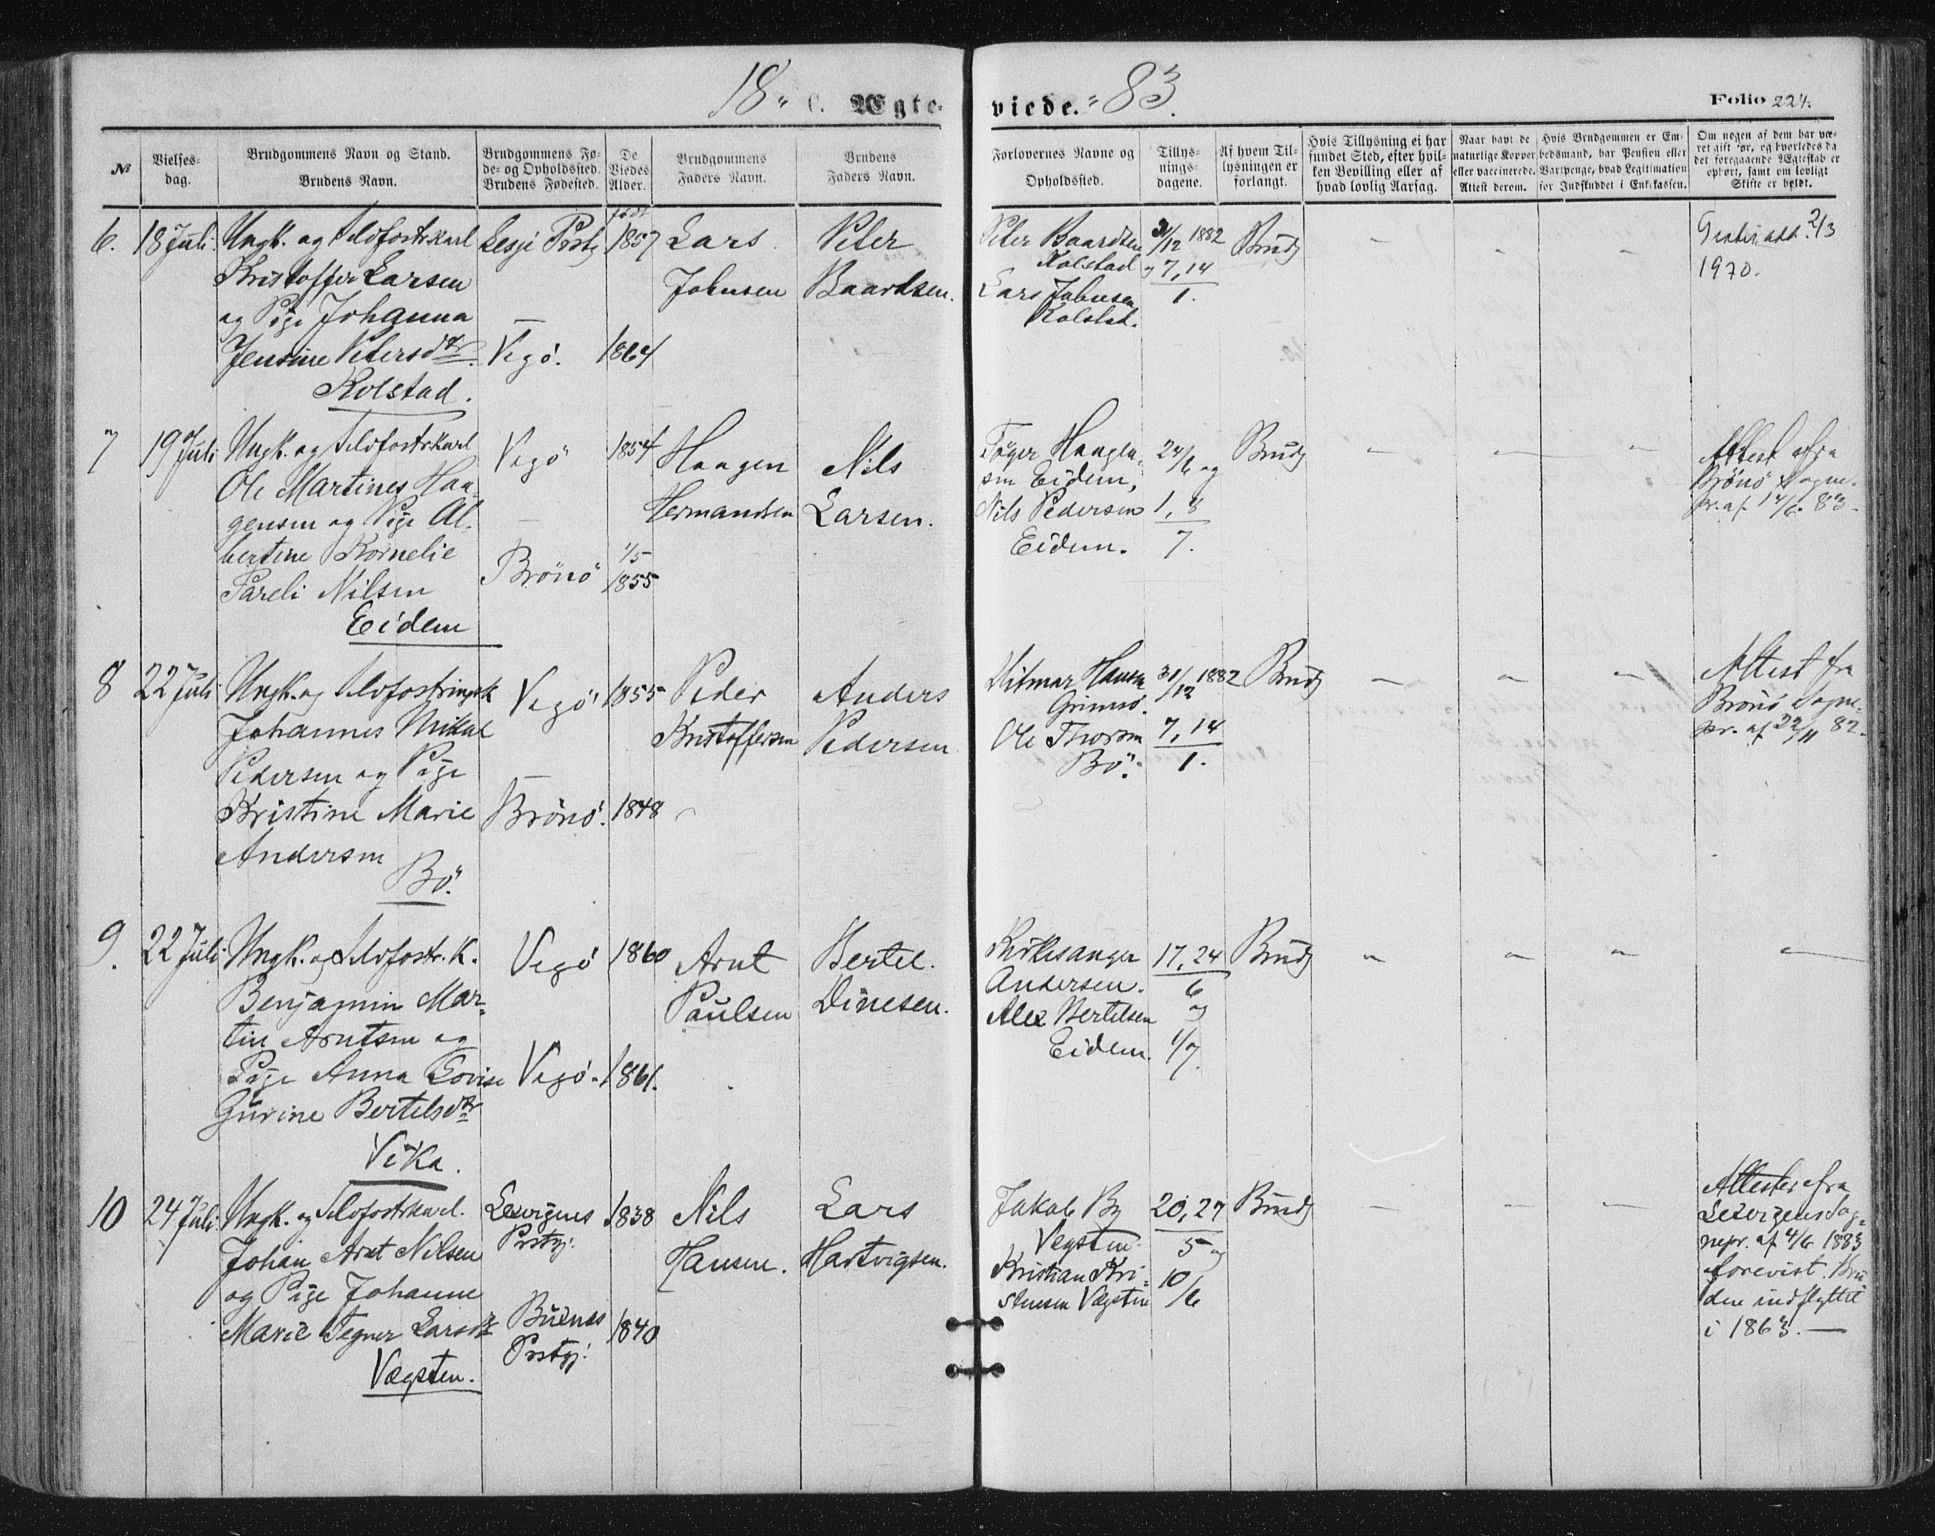 18 " C. Ægteviede. " 83.
Folio 224.
№
Vielses-
dag.
Brudgommens Navn og Stand.
Brudens Navn.
Brudgommens Fø-
de- og Opholdssted.
Brudens Fødested.
De
Viedes
Alder.
Brudgommens
Faders Navn.
Brudens
Faders Navn.
Forlovernes Navne og
Opholdssted.
Tillys-
nings-
dagene.
Af hvem Til-
lysningen er
forlangt.
Hvis Tillysning ei har
fundet Sted, efter hvil-
ken Bevilling eller af
hvad lovlig Aarsag.
Naar havt de
naturlige Kopper
eller vaccinerede.
Attest derom.
Hvis Brudgommen er Em-
bedsmand, har Pension eller
Vartpenge, hvad Legitimation
for Indskuddet i Enkekassen.
Om nogen af dem har væ-
ret gift før, og hvorledes da
det foregaaende Ægteskab er
ophørt, samt om lovligt
Skifte er holdt.
6.
18 Juli
Ungk. og Selvfostrkarl
Kristoffer Larsen
og Pige Johanna
Jensine Petersdtr.
Kolstad.
Lesje Prstgj
Vegö.
1857
1864
Lars
Johnsen
Peter
Baardsen.
Peter Baardsen
Kolstad
Lars Johnsen
Kolstad.
31/12 1882
og 7, 14
1.
Brudg
–
–
–
2/3
1970.
7
19 Juli
Ungk. og Selvfostrkarl
Ole Martines Haa-
gensen og Pige Al-
bertine Kornelie
Pareli Nilsen
Eidem
Vegö
–
Brönö
1854
1/5
1855
Haagen
Hermandsen
Nils
Larsen.
Töger Haagen-
sen Eidem,
Nils Pedersen
Eidem.
24/6 og
1, 8
7.
Brudg
–
–
–
Attest fra
Brönö Sogne-
pr. af 14/6. 83.
8
22 Juli
Ungk. og Selvfostringsk
Johannes Mikal
Pedersen og Pige
Kristine Marie
Andersen
Bö.
Vegö
–
Brönö.
1855
1848
Peder
Kristoffersen
Anders
Pedersen
Hitmar Hansen
Grimsö.
Ole Thorsen
Bö.
31/12 1882
7, 14
1.
Brudg
–
–
–
Attest fra
Brönö Sogne-
pr. af 22/11 82.
9.
22 Juli
Ungk. og Selvfostr. K.
Benjamin Mar-
tin Arntsen og
Pige Anna Lovise
Gurine Bertelsdtr
Vika.
Vegö
Vegö.
1860
1861.
Arnt
Paulsen
Bertel
Dinesen.
Kirkesanger
Andersen.
Alex Bertelsen
Eidem.
17, 24
6
og
1/7.
Brudg
–
–
–
–
10
24 Juli
Ungk. og Selvfostrkarl.
Johan Arnt Nilsen
og Pige Johanne
Marie Tegner Larsdtr
Vægsten.
Leevigens
Prstgj.
Buknæs
Prstgj.
1838
1840
Nils
Hansen.
Lars
Hartvigsen.
Jakob By
Vegsten.
Kristian Kri-
stensen Vægsten
20, 27
5 og
10
/6
Brudg
–
–
–
Attester fra
Leevigens Sog-
nepr. af 4/6 1883
forevist. Bru-
den indflyttet
i 1863. –